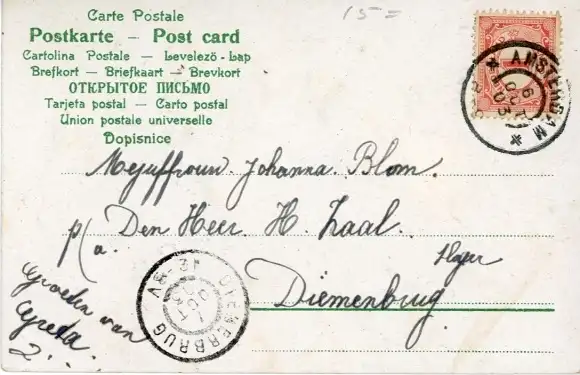 15=
Carte Postale
Postkarte — Post card
Cartolina Postale — Levelező-Lap
Brefkort — Briefkaart — Brevkort
ОТКРЫТОЕ ПИСЬМО
Tarjeta postal — Carto postal
Union postale universelle
Dopisnice
AMSTERDAM
6 OCT 03
Mejuffrouw Johanna Blom.
p/a. Den Heer H. Zaal.
Slager
Diemenbrug
DIEMERBRUG
OCT
Groeten van
Greta.
2.